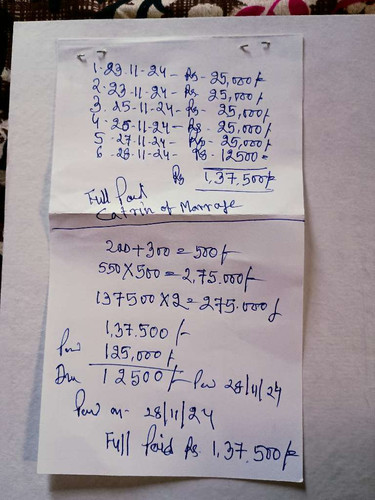 1. 23-11-24 - Rs - 25,000/-
2. 23-11-24 - Rs - 25,000/-
3. 25-11-24 - Rs - 25,000/-
4. 25-11-24 - Rs - 25,000/-
5. 27-11-24 - Rs - 25,000/-
6. 28-11-24 - Rs - 12500=
Rs 1,37,500/-
Full Paid
Catrin of Marrage
200+300=500/-
550X500=2,75.000/-
137500X2=275.000/-
1,37.500/-
125,000/-
Due 12500/- 28/11/24
on - 28/11/24
Full Paid Rs. 1,37.500/-